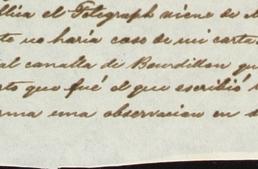 allia el Telegraph viene de
to no haria caso de mi carta
al canalla de Bourdillon qu
to que fué el que escribió
rma una observacion en